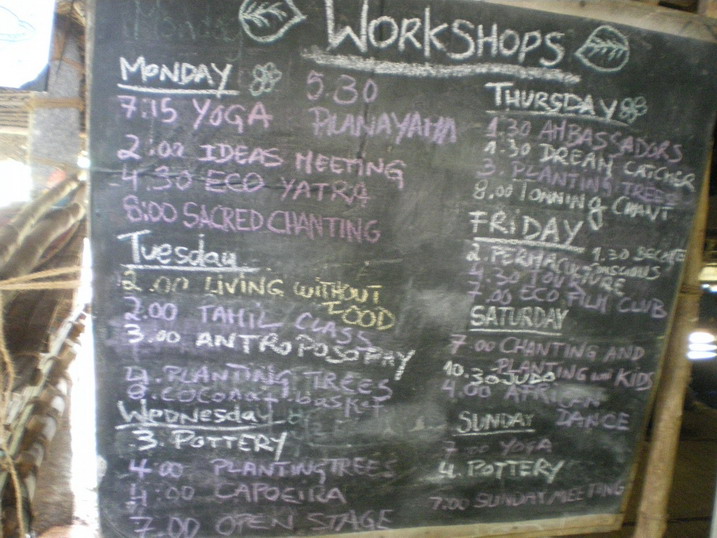 WORKSHOPS
MONDAY
7:15 YOGA
5.30
2:00 IDEAS MEETING
4.30 ECO YATRA
8:00 SACRED CHANTING
Tuesday
2.00 LIVING WITHOUT
FOOD
2.00 TAMIL CLASS
3.00 ANTROPOSOPHY
4. PLANTING TREES
8. coconat basket
Wednesday
3. POTTERY
4:00 PLANTING TREES
4:00 CAPOEIRA
7.00 OPEN STAGE
THURSDAY
1.30 AMBASSADORS
1.30 DREAM CATCHER
3. PLANTING TREES
8.00 TONNING CHANT
FRIDAY
1.30
2. PERMACULTURE
4.30
7.00 ECO FILM CLUB
SATURDAY
7.00 CHANTING AND
PLANTING with KIDS
10.30 JUDO
4.00 AFRICAN
DANCE
SUNDAY
7.00 YOGA
4. POTTERY
7:00 SUNDAY MEETING